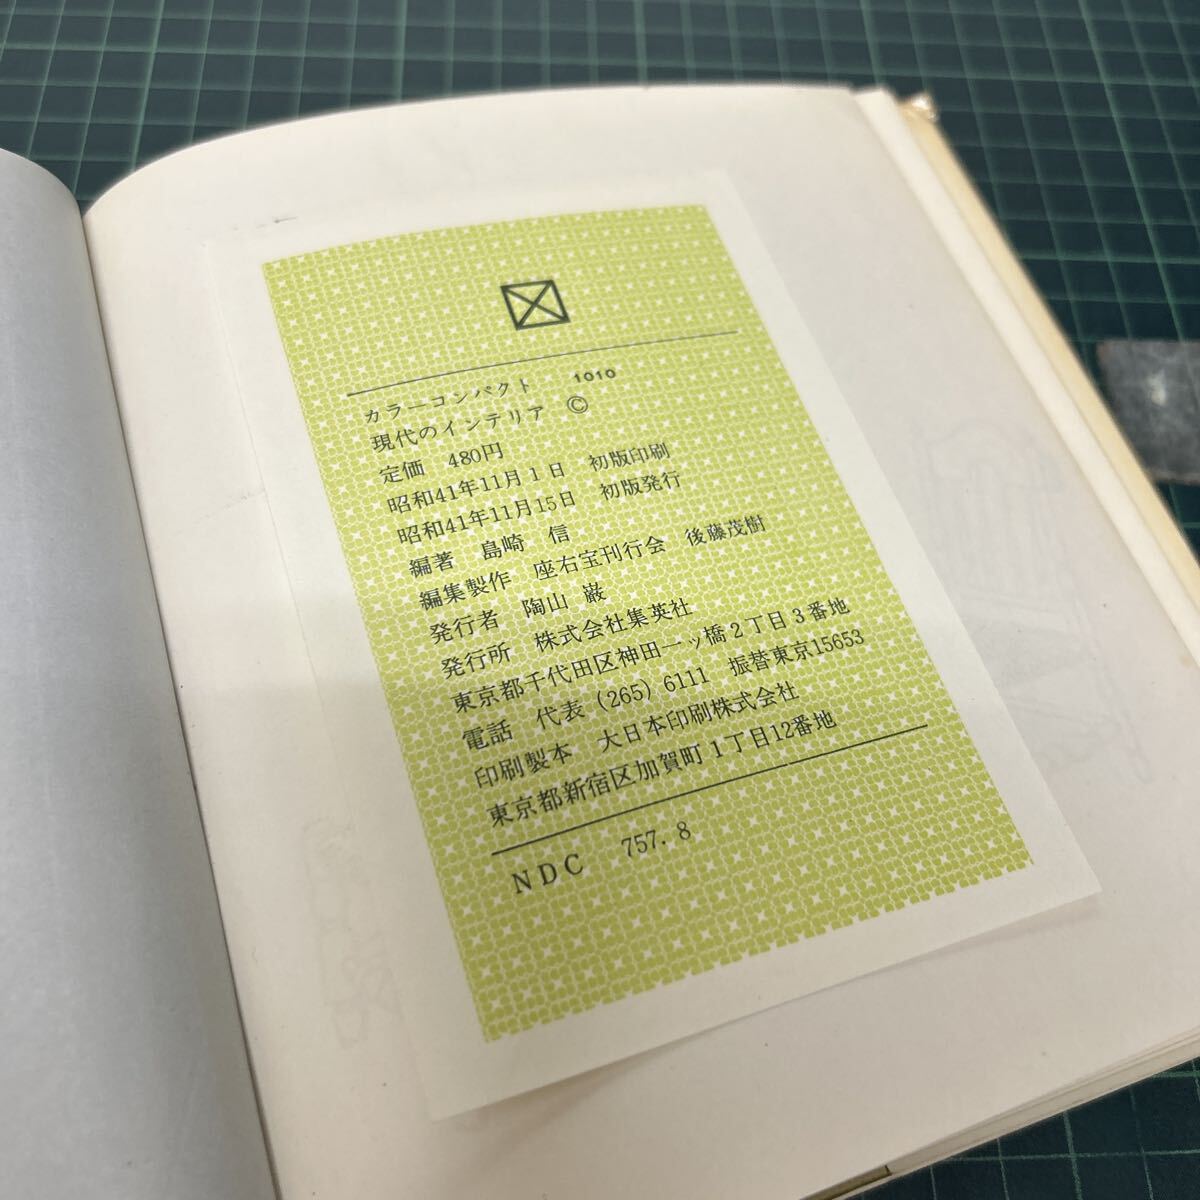 カラーコンパクト 1010
現代のインテリア ©
定価 480円
昭和41年11月1日 初版印刷
昭和41年11月15日 初版発行
編著 島崎 信
編集製作 座右宝刊行会 後藤茂樹
発行者 陶山 巌
発行所 株式会社集英社
東京都千代田区神田一ッ橋2丁目3番地
電話 代表(265)6111 振替東京15653
印刷製本 大日本印刷株式会社
東京都新宿区加賀町1丁目12番地
NDC 757.8